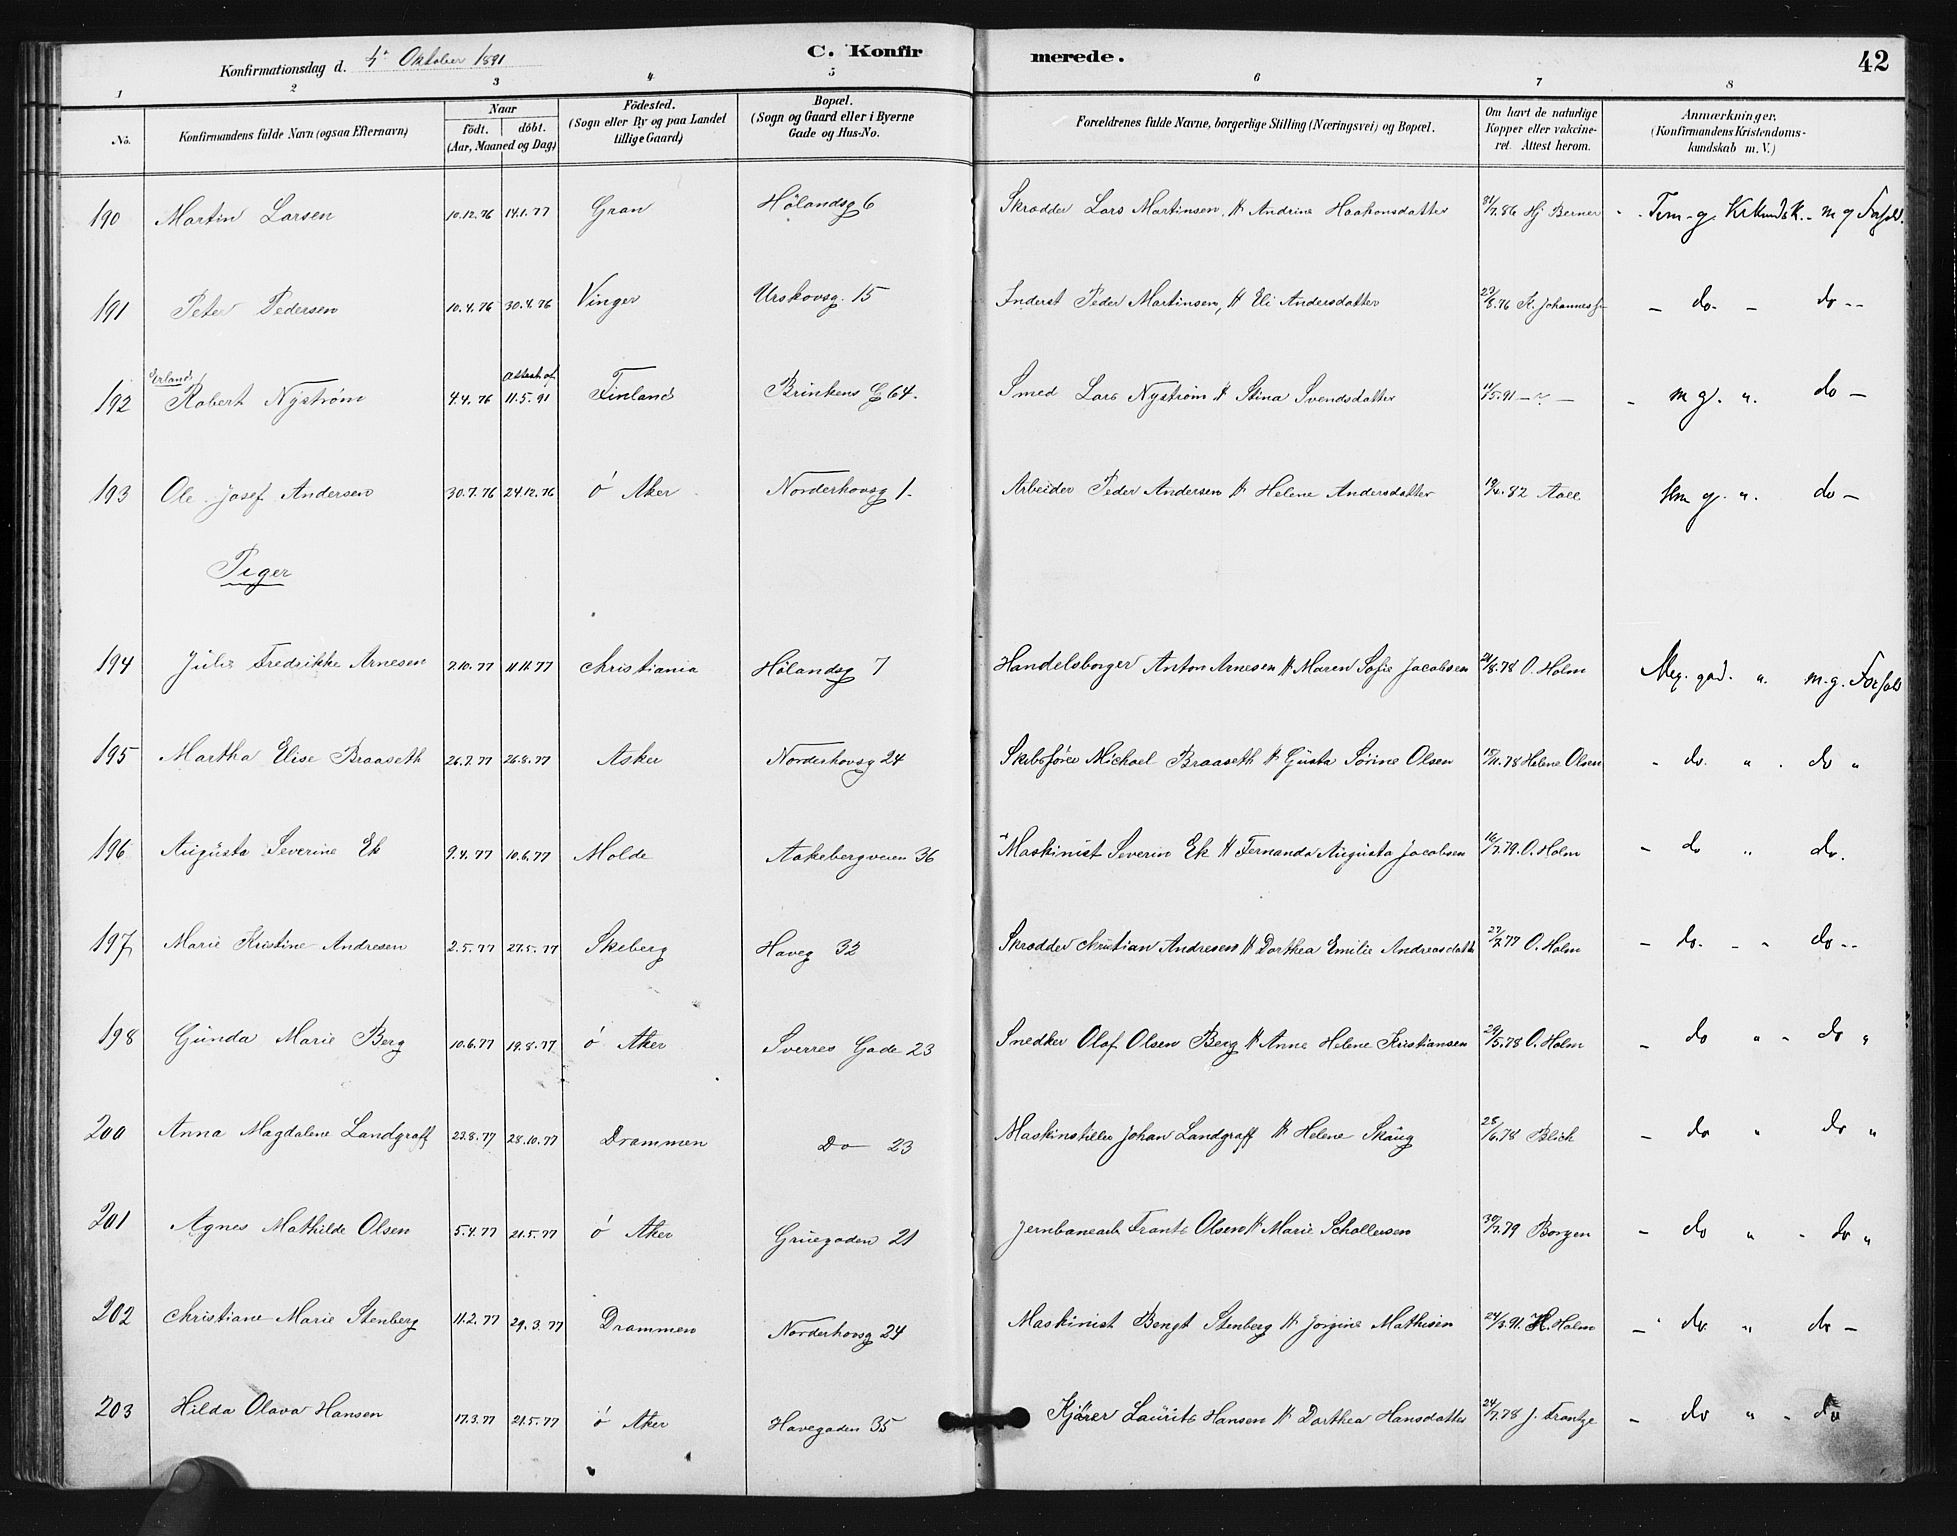 C. Konfirmerede. 42
Konfirmationsdag d. 4 Oktober 1891
1 2 3 4 5 6 7 8
No. Konfirmandens fulde Navn (ogsaa Efternavn) Naar født. døbt. (Aar, Maaned og Dag) Fødested. (Sogn eller By og paa Landet tillige Gaard) Bopæl. (Sogn og Gaard eller i Byerne Gade og Hus-No. Forældrenes fulde Navne, borgerlige Stilling (Næringsvei) og Bopæl. Om havt de naturlige Kopper eller vakcineret. Attest herom. Anmærkninger, (Konfirmandens Kristendomskundskab m. V.)
190 Martin Larsen 10.12.76 14.1.77 Gran Hölandsg 6 Skrædder Lars Martinsen, H Andrine Haakonsdatter 31/7.86 Hj Berner Tem-g. Krkundsk. - m g Forhold.
191 Peter Pedersen 10.4.76 30.4.76 Vinger Urskovsg. 15 Inderst Peder Martinsen, H Eli Andersdatter 23/8.76 K. Johannes - do. - do --
192 Erland Robert Nyström 4.4.76 Attest af 11.5.91 Finland Brinkens G 64. Smed Lars Nyström H Stina Svendsdatter 11/5.91 - " - - m g. ". do -
193 Ole Josef Andersen 30.7.76 24.12.76 ö Aker Norderhovsg 1. Arbeider Peder Andersen H Helene Andersdatter 82 Aall tem g. ". do -
Piger
194 Julie Fredrikke Arnesen 7.10.77 11.11.77 Christiania Hölandsg 7 Handelsborger Anton Arnesen H Maren Sofie Jacobsen 21/8.78 O. Holm Meg. god. ". m.g. Forhold
195 Martha Elise Braaseth 26.7.77 26.8.77 Asker Norderhovsg 24 Skibsfører Michael Braaseth H Gusta Sörine Olsen 15/11.78 Helene Olsen - do. " . do "
196 Augusta Severine Ek 9.4.77 10.6.77 Molde Aakebergveien 36 Maskinist Severin Ek H Fernanda Augusta Jacobsen 16/7.79. O. Holm - do " do.
197 Marie Kristine Andresen 2.5.77 27.5.77 Skeberg Haveg 32 Skrædder Christian Andresen H Dorthea Emilie Andreasdatter 27/7.77 O. Holm - do. - " do --
198 Gunda Marie Berg 10.6.77 19.8.77 ö Aker Sverres Gade 23 Snedker Olaf Olsen Berg H Anne Helene Kristiansen 29/5.78 O. Holm - do " - do "
200 Anna Magdalene Landgraff 23.8.77 28.10.77 Drammen Do 23 Maskinstiller Johan Landgraff H Helene Skaug 28/6.78 Blich - do " do "
201 Agnes Mathilde Olsen 5.4.77 21.5.77 ö Aker Gruegaden 21 Jernbanearb Frants Olsen H Marie Schollersen 30/7.79 Borgen - do " - do "
202 Christiane Marie Stenberg 11.2.77 29.3.77 Drammen Norderhovsg 24 Maskinist Bengt Stenberg H Jorgine Mathisen 24/3.91. H. Holm - do. " do -
203 Hilda Olava Hansen 17.3.77 21.5.77 ö Aker Havegaden 35 Kjörer Laurits Hansen H Dorthea Hansdatter 24/7.78 J. Frantze - do " - do